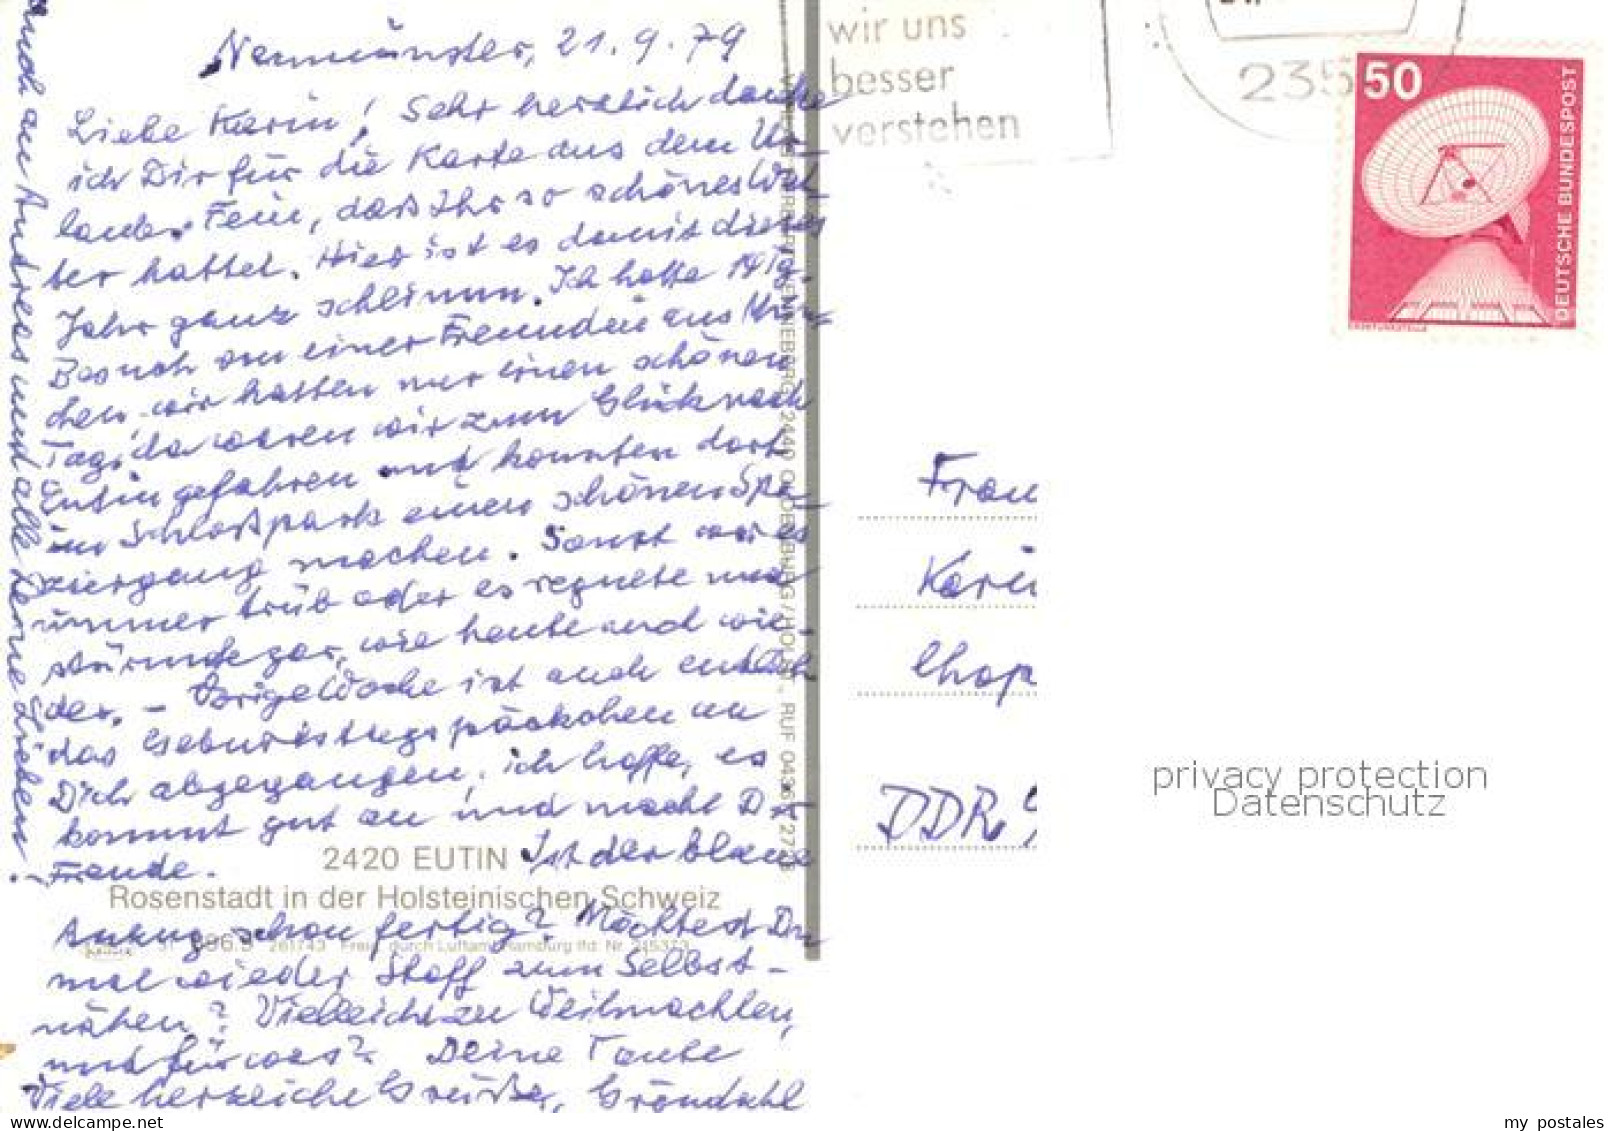 Neumünster, 21.9.79
Liebe Karin! Sehr herzlich danke
ich Dir für die Karte aus dem Ur-
laub. Fein, daß Ihr so schönes Wet-
ter hattet. Hier ist es damit dieses
Jahr ganz schlimm. Ich hatte 14 tg.
Besuch von einer Freundin aus Mün-
chen, wir hatten nur einen schönen
Tag, da waren wir zum Glück nach
Eutin gefahren und konnten dort
im Schloßpark einen schönen Spa-
ziergang machen. Sonst war es
immer trüb oder es regnete und
stürmte gar, wie heute auch wie-
der. - Vorige Woche ist auch endlich
das Geburtstagspäckchen an
Dich abgegangen, ich hoffe, es
kommt gut an und macht Dir
Freude. Ist der blaue
Anzug schon fertig? Möchtest Du
mal wieder Stoff zum Selbst-
nähen? Vielleicht zu Weihnachten,
und für was? Deine Tante
Viele herzliche Grüße,
auch an Andreas und alle Deine Lieben.
2420 EUTIN
Rosenstadt in der Holsteinischen Schweiz
261743 Freig. durch Luftamt Hamburg lfd. Nr.
wir uns
besser
verstehen
235
50
DEUTSCHE BUNDESPOST
Frau
Kari
Chop
DDR 9
privacy protection
Datenschutz
my postales